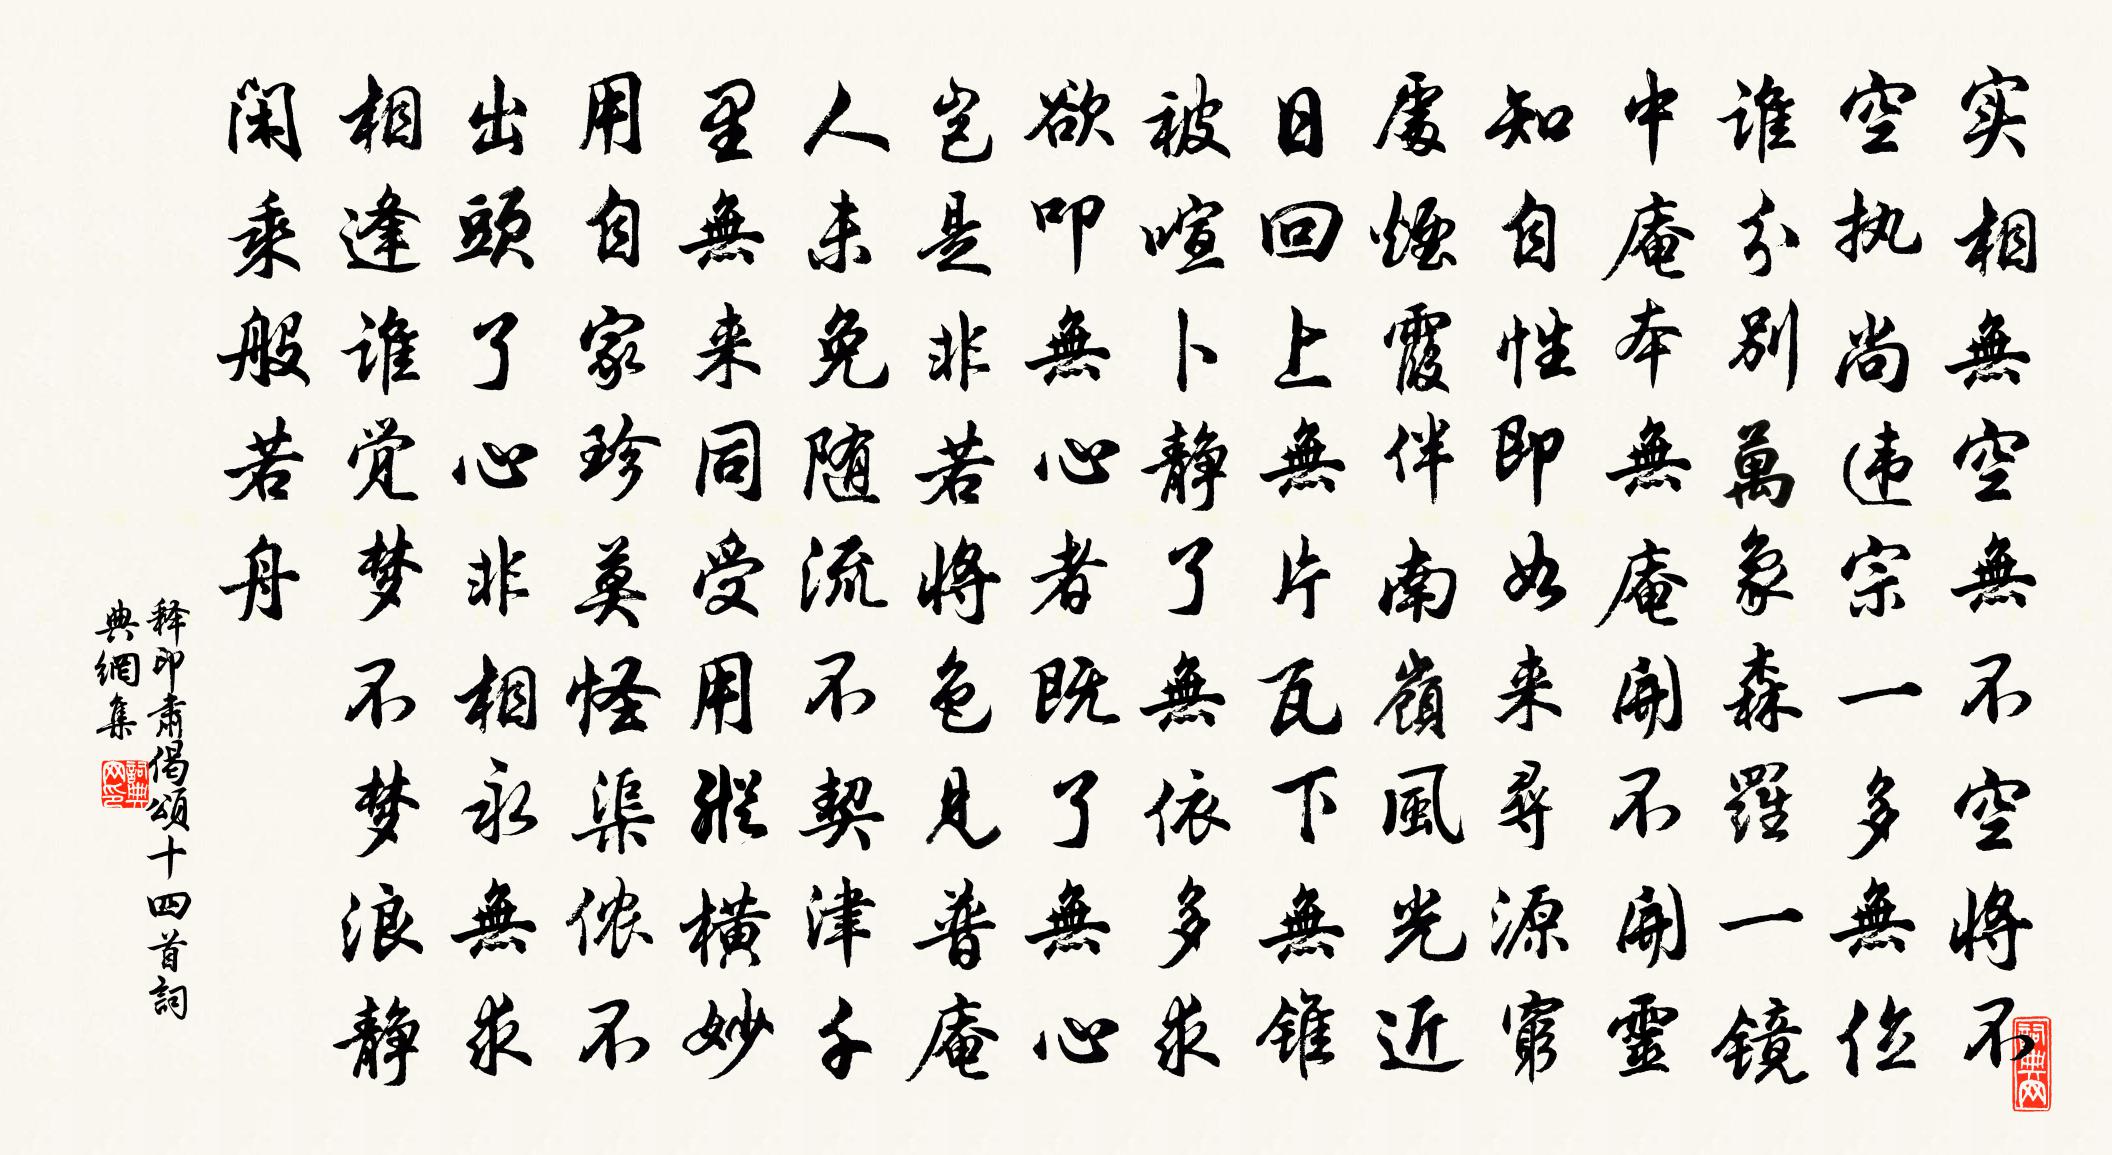 实相無空無不空将不
空执尚违宗一多無位
谁分别萬象森羅一镜
中庵本無庵開不開靈
知自性即如来尋源窮
處煙霞伴南嶺風光近
日回上無片瓦下無锥
被喧卜静了無依多求
欲叩無心者既了無心
岂是非若将色见普庵
人未免随流不契津千
里無来同受用縱横妙
用自家珍莫怪渠侬不
出頭了心非相永無求
相逢谁觉梦不梦浪静
闲乘般若舟
释印肃偈頌十四首詞
典網集
詞典网
詞典网